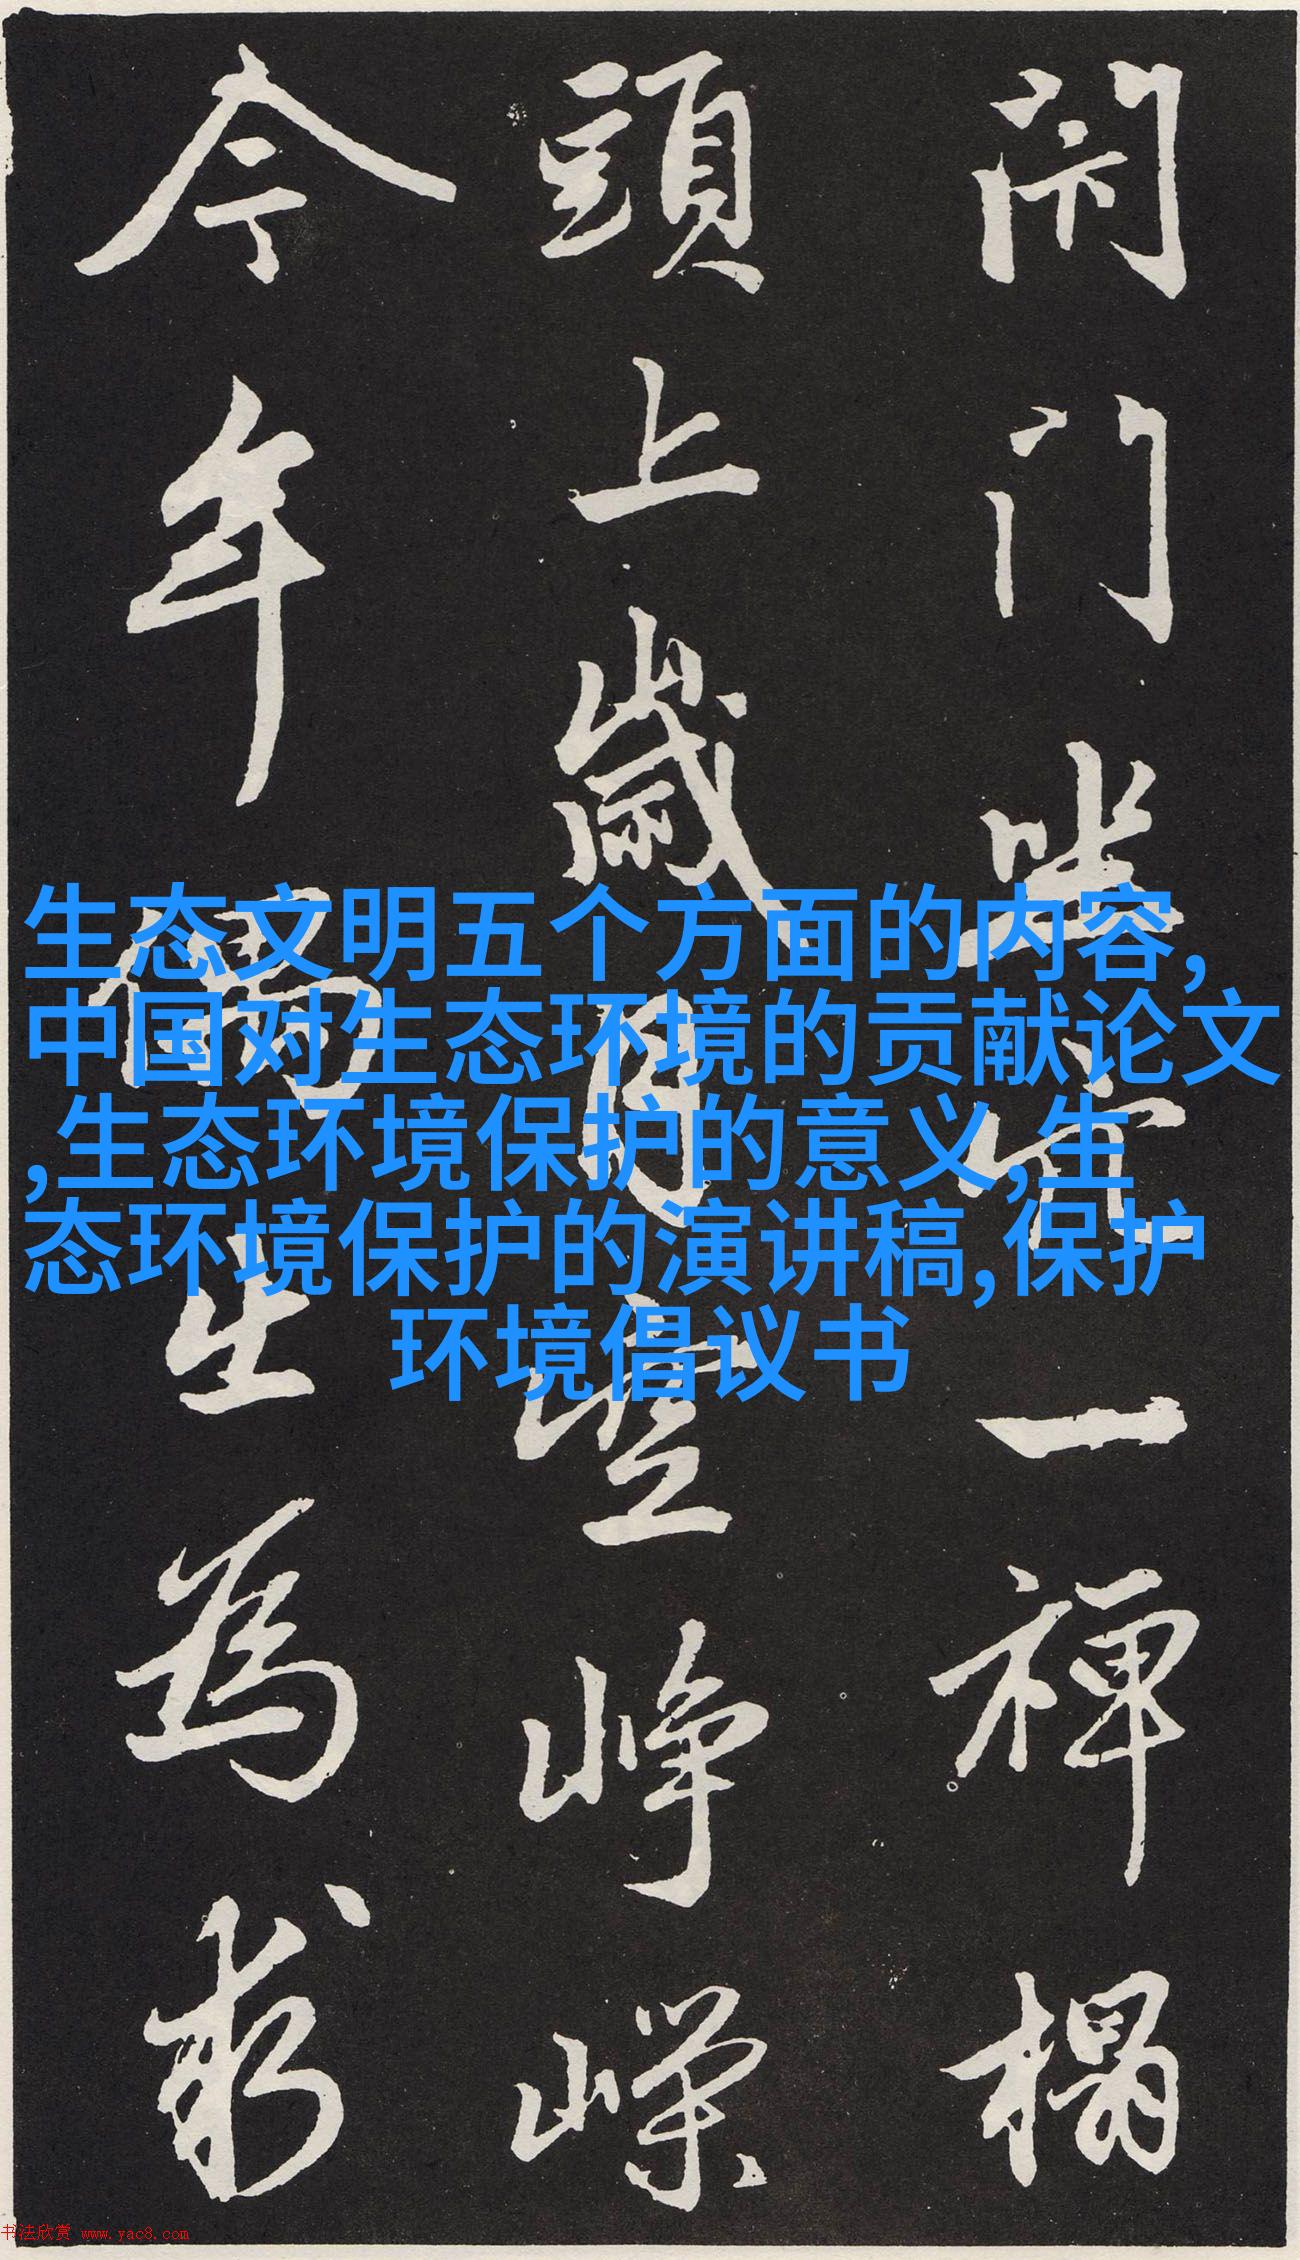 閉門坐穴一禪榻
頭上歲月空崢嶸
今年偶出為求
生态文明五个方面的内容,
中国对生态环境的贡献论文
,生态环境保护的意义,生
态环境保护的演讲稿,保护
环境倡议书
书法欣赏 www.yac8.com